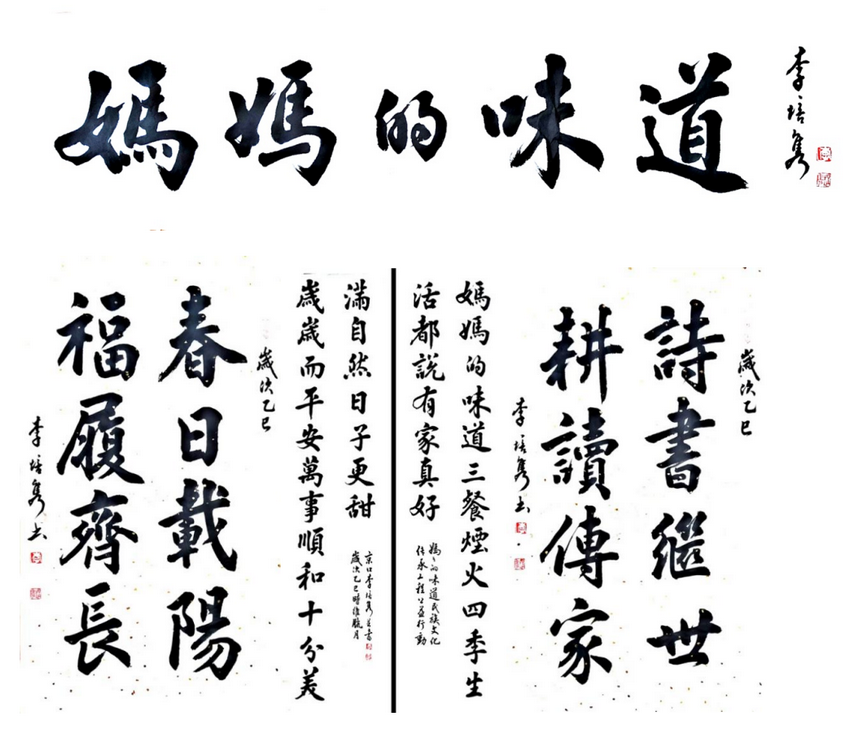 媽媽的味道
李培隽
歲次乙巳
詩書繼世
耕讀傳家
李培隽书
媽媽的味道三餐煙火四季生
活都說有家真好
媽〻的味道民族文化
传承工程公益行動
歲歲而平安萬事順和十分美
滿自然日子更甜
京口李培隽并书
歲次乙巳時維臘月
歲次乙巳
春日載陽
福履齊長
李培隽书